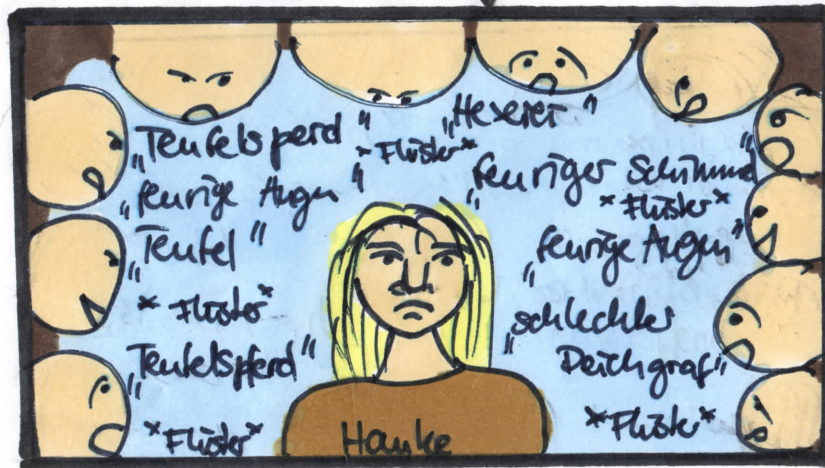 „Teufelsperd"
„Hexerei"
*Flüster*
„feurige Augen"
„feuriger Schimmel"
*Flüster*
„Teufel"
„feurige Augen"
*Flüster*
„schlechter
Deichgraf"
„Teufelspferd"
*Flüster*
*Flüster*
Hauke